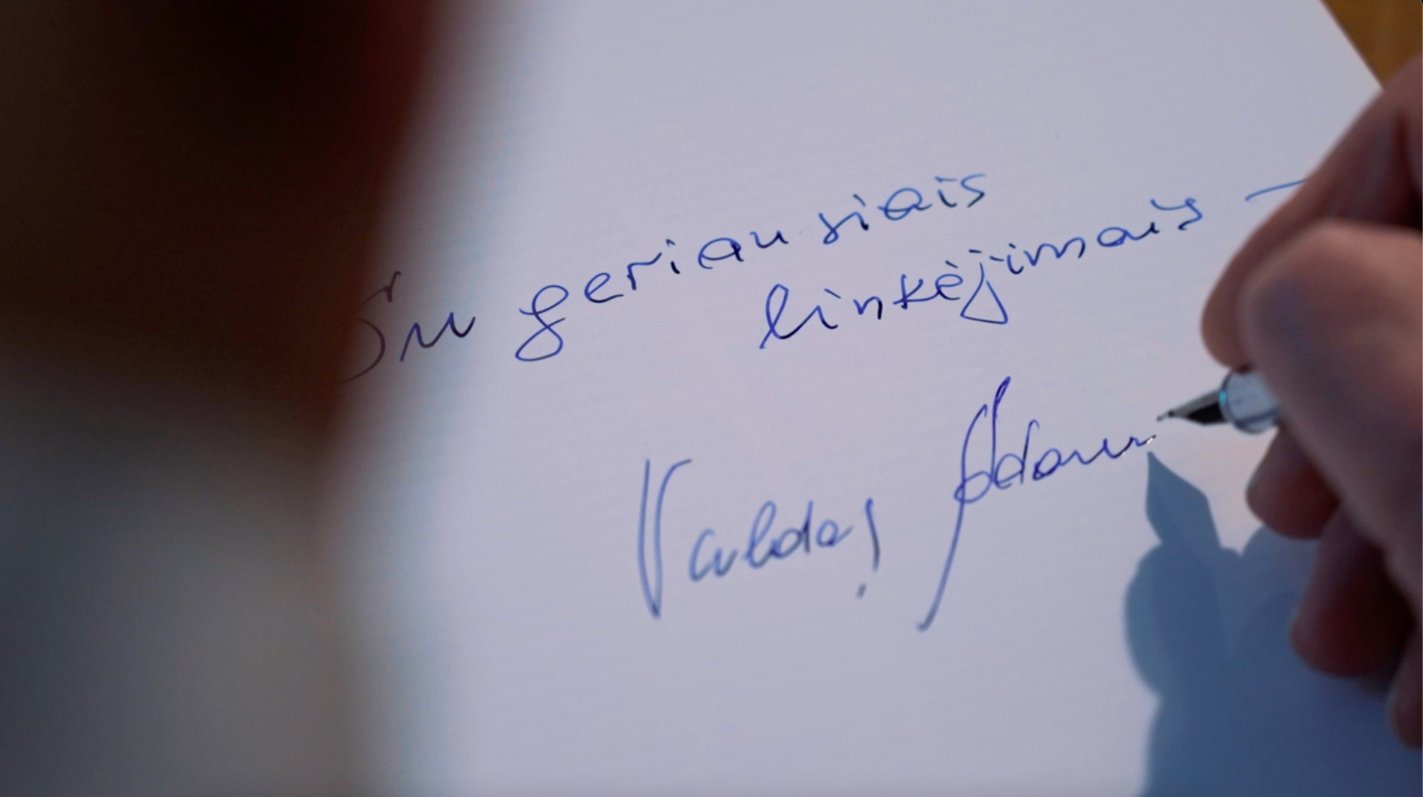 Su geriausiais
linkėjimais –
Valdas Adam